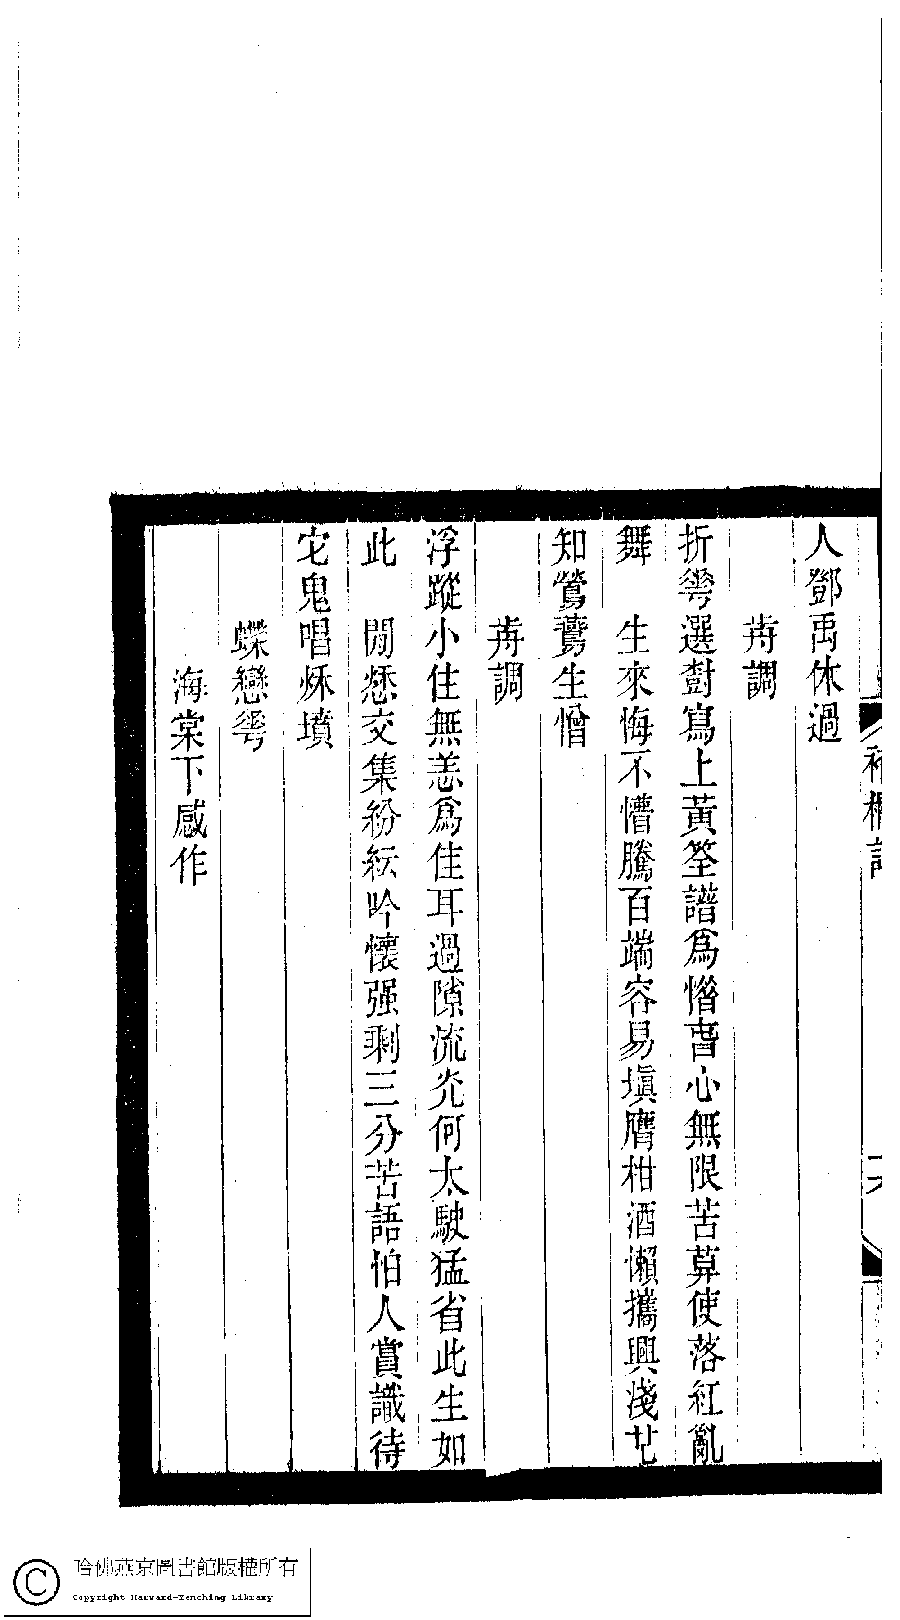 人鄧禹休過
歬調
折蕚選對寫上黃筌譜爲惜春心無限苦算使落紅亂
舞　生來悔不懵騰百端容易塡膺柑酒懶攜興淺
知鶯鷰生憎
歬調
浮蹤小住無恙爲佳耳過隙流光何太駛猛省此生如
此　閒愁交集紛紜吟懷强剩三分苦語怕人賞識待
它鬼唱秌墳
蝶戀蕚
海棠下感作
哈佛燕京圖書館版權所有
Copyright Harvard-Yenching Library